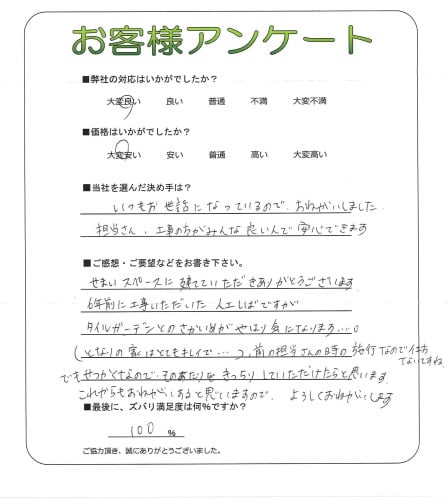 お客様アンケート
■弊社の対応はいかがでしたか？
大変良い 良い 普通 不満 大変不満
■価格はいかがでしたか？
大変安い 安い 普通 高い 大変高い
■当社を選んだ決め手は？
いつもお世話になっているので、おねがいしました
担当さん、工事の方がみんな良い人で安心できます
■ご感想・ご要望などをお書き下さい。
せまいスペースに建てていただきありがとうございます
6年前に工事いただいた人工しばですが
タイルガーデンとのさかいめがやはり気になります…。
（となりの家はとてもキレイで…）、前の担当さんの時の施行なので仕方ないですね
でもせっかくなので、そのあたりもきっちりしていただけたらと思います
これからもおねがいすると思っていますので、よろしくおねがいします
■最後に、ズバリ満足度は何％ですか？
100 ％
ご協力頂き、誠にありがとうございました。